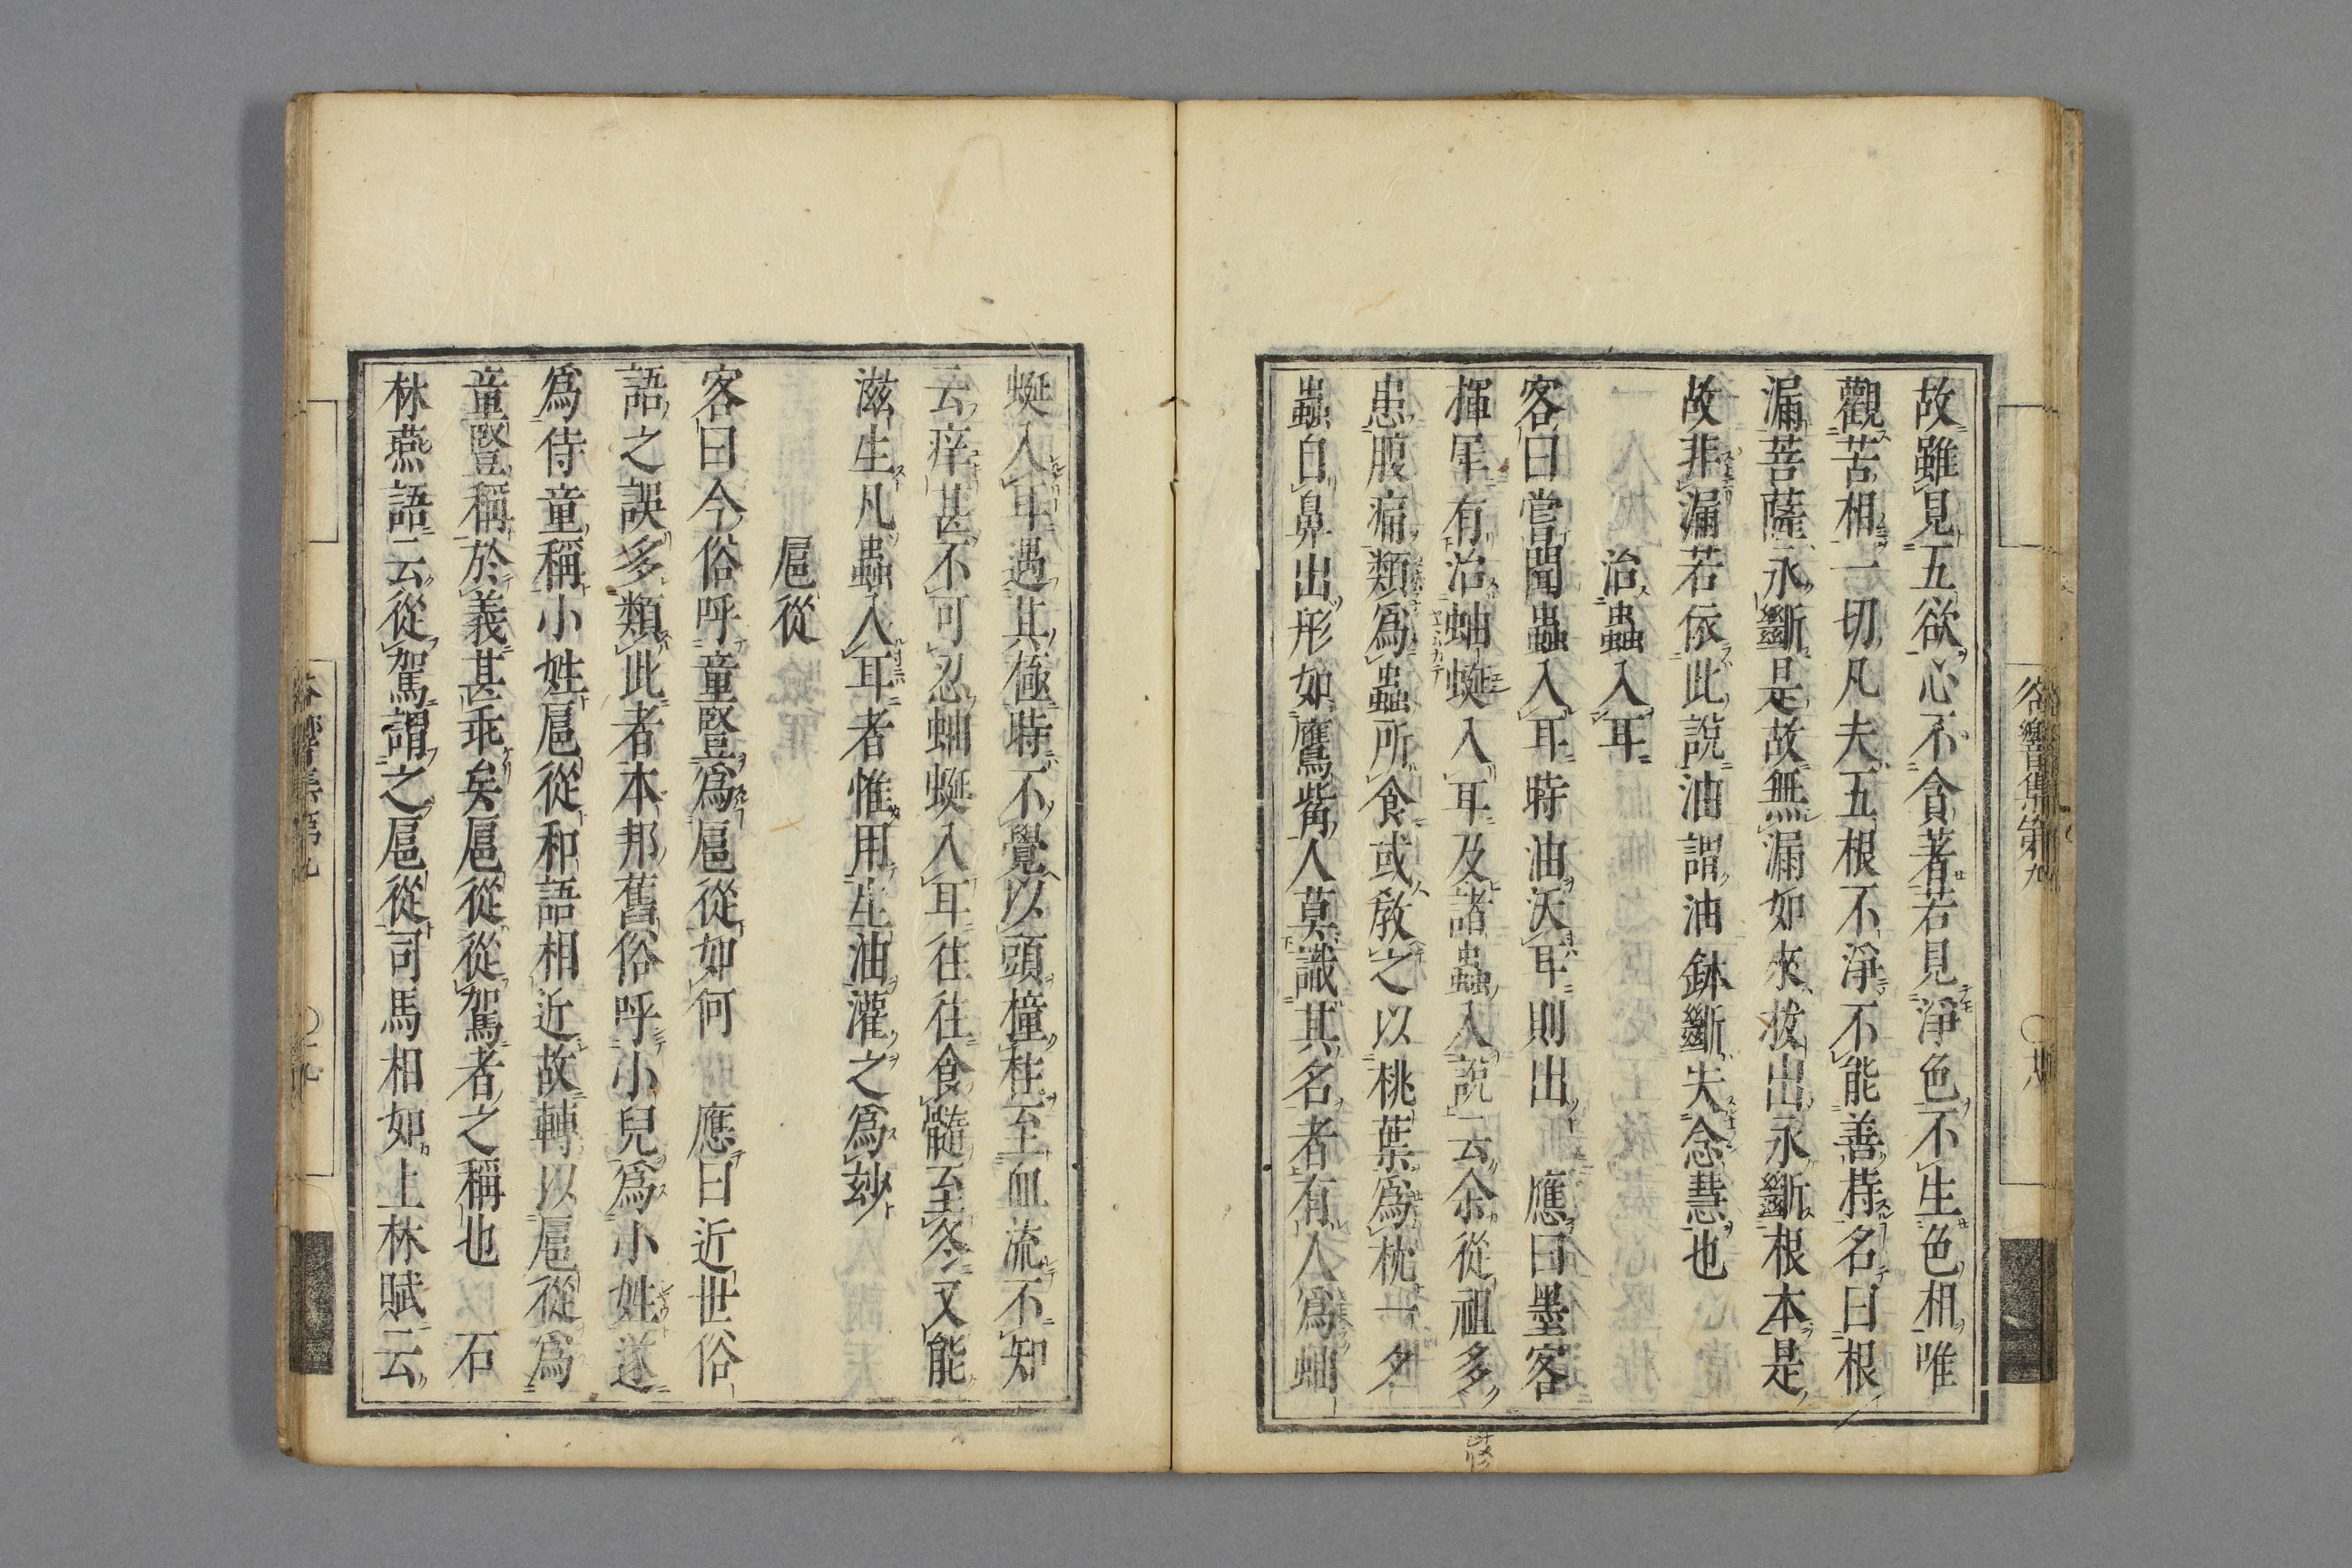 故雖見五欲心不貪著若見淨色不生色相唯
觀苦相一切凡夫五根不淨不能善持名曰根
漏菩薩永斷是故無漏如來拔出永斷根本是
故非漏若依此說油謂油鉢斷失念慧也
治蟲入耳
客曰嘗聞蟲入耳時油沃耳則出 應曰墨客
揮犀有治蚰蜒入耳及諸蟲入說云余從祖多
患腹痛類爲蟲所食或敎之以桃葉爲枕一夕
蟲自鼻出形如鷹觜人莫識其名者有人爲蚰
蜒入耳遇其極時不覺以頭撞柱至血流不知
云痒甚不可忍蚰蜒入耳往往食髓至冬又能
滋生凡蟲入耳者惟用生油灌之爲玅
扈從
客曰今俗呼童豎爲扈從如何 應曰近世俗
語之誤多類此者本邦舊俗呼小兒爲小姓遂
爲侍童稱小姓扈從和語相近故轉以扈從爲
童豎稱於義甚乖矣扈從從駕者之稱也 石
林燕語云從駕謂之扈從司馬相如上林賦云
谷響集第九